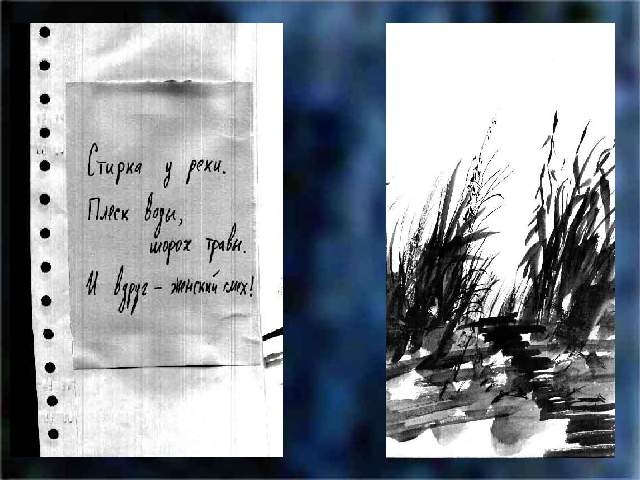 Стирка у реки.
Плеск воды,
шорох травы.
И вдруг – женский смех!